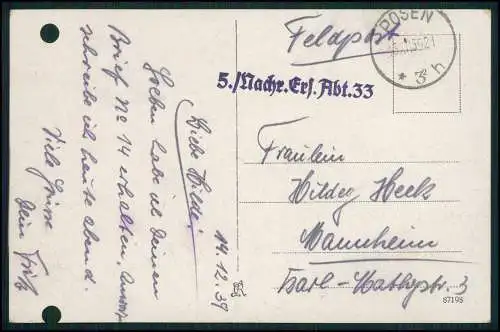 14.12.39
Liebe Hilde!
Soeben habe ich Deinen
Brief No 14 erhalten, Antwort
schreibe ich heute abend.
Viele Grüsse
Dein Fritz
Feldpost
POSEN
* 3 h
5./Nachr.Ers.Abt.33
Fräulein
Hilde Heck
Mannheim
Karl-Mathystr. 3
87198